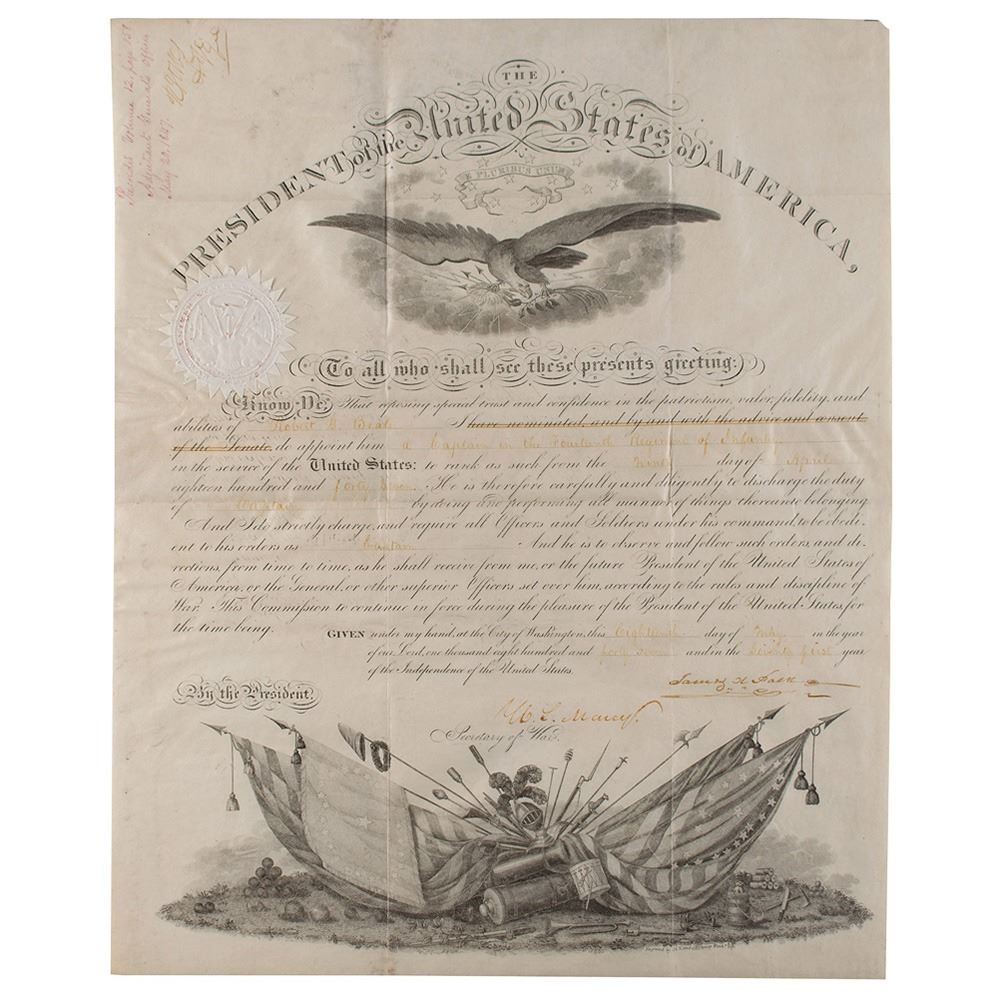 Volume 12, page 158
Adjutant General's Office
May 20, 1847.
THE
PRESIDENT of the United States of AMERICA,
E PLURIBUS UNUM
To all who shall see these presents greeting:
Know Ye, That reposing special trust and confidence in the patriotism, valor, fidelity, and
abilities of Robert G. Beale I have nominated, and by and with the advice and consent
of the Senate, do appoint him a Captain in the Fourteenth Regiment of Infantry
in the service of the United States: to rank as such from the ninth day of April
eighteen hundred and forty seven. He is therefore carefully and diligently to discharge the duty
of Captain by doing and performing all manner of things thereunto belonging
And I do strictly charge, and require all Officers and Soldiers under his command, to be obedi-
ent to his orders as Captain And he is to observe and follow such orders, and di-
rections, from time to time, as he shall receive from me, or the future President of the United States of
America, or the General, or other superior Officers set over him, according to the rules and discipline of
War. This Commission to continue in force during the pleasure of the President of the United States, for
the time being.
GIVEN under my hand, at the City of Washington, this eighteenth day of May in the year
of our Lord, one thousand eight hundred and forty seven and in the seventy first year
of the Independence of the United States.
By the President.
James K Polk
W. L. Marcy.
Secretary of War.